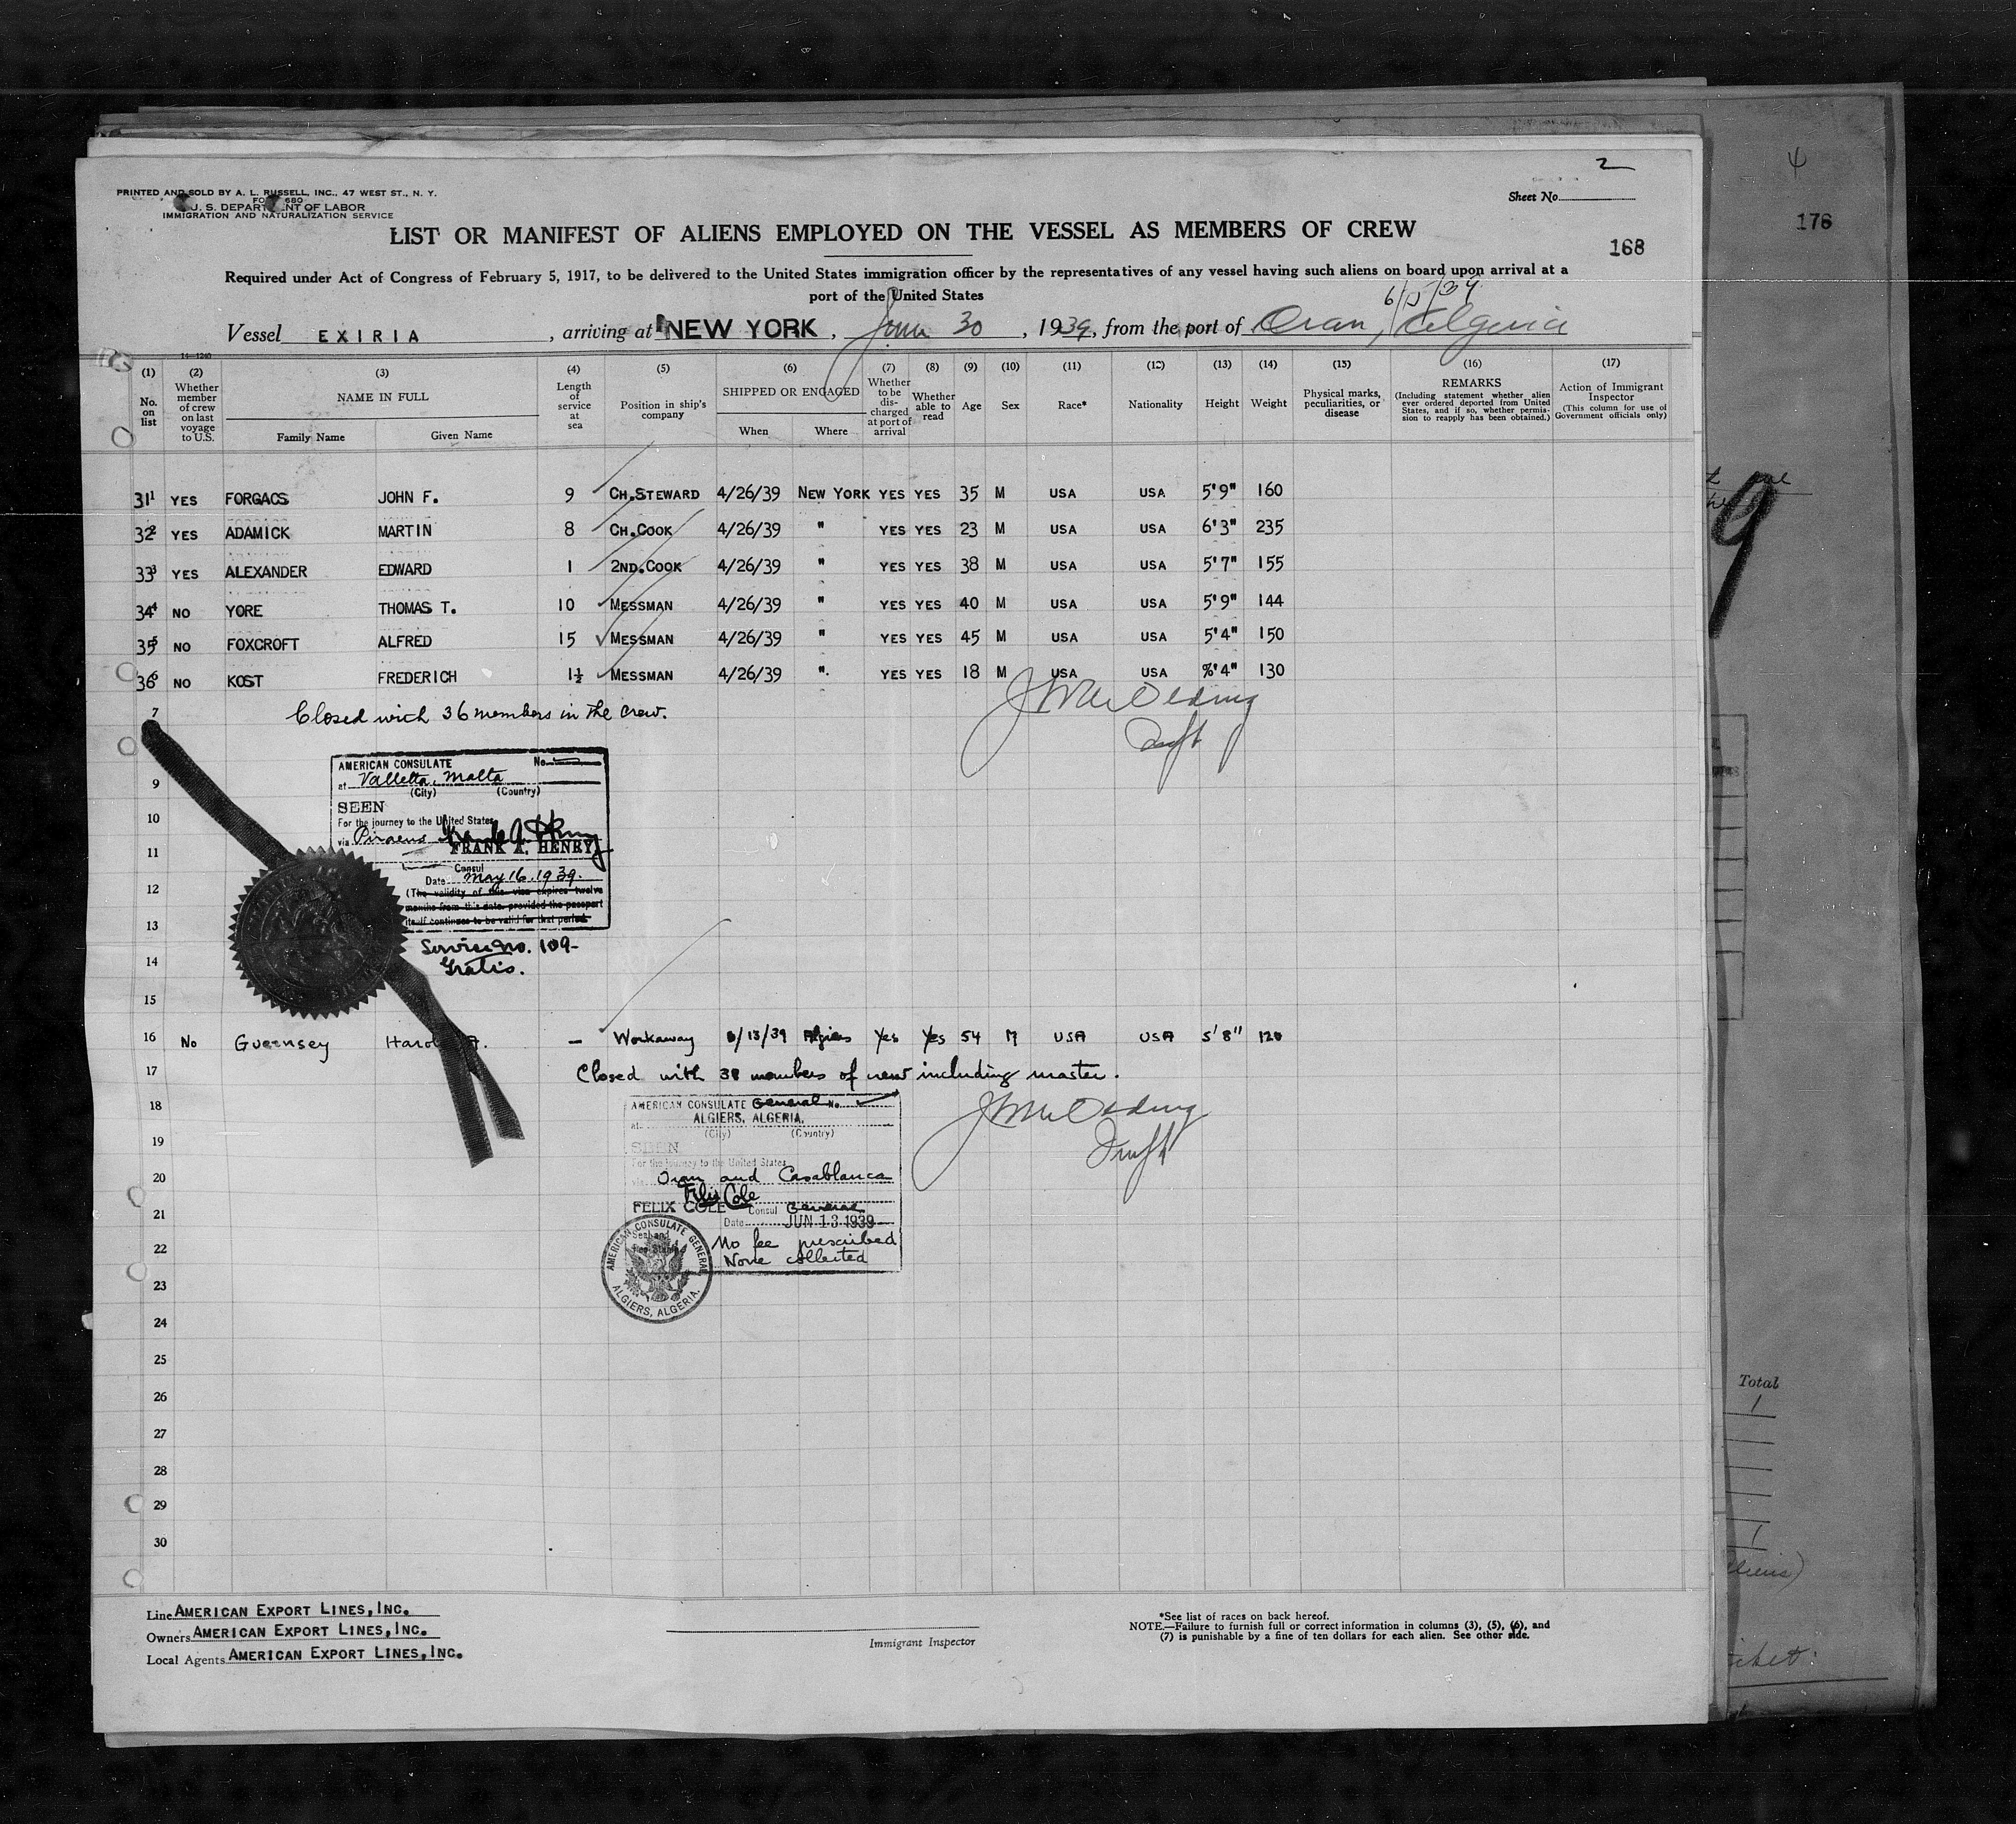 2
PRINTED AND SOLD BY A. L. RUSSELL, INC., 47 WEST ST., N. Y.
680
U. S. DEPARTMENT OF LABOR
IMMIGRATION AND NATURALIZATION SERVICE
Sheet No.
LIST OR MANIFEST OF ALIENS EMPLOYED ON THE VESSEL AS MEMBERS OF CREW
168
176
Required under Act of Congress of February 5, 1917, to be delivered to the United States immigration officer by the representatives of any vessel having such aliens on board upon arrival at a
port of the United States
Vessel EXIRIA, arriving at NEW YORK, June 30, 1939, from the port of Oran, Algeria
14—1240
(1) No. on list
(2) Whether member of crew on last voyage to U.S.
(3) NAME IN FULL Family Name Given Name
(4) Length of service at sea
(5) Position in ship's company
(6) SHIPPED OR ENGAGED When Where
(7) Whether to be discharged at port of arrival
(8) Whether able to read
(9) Age
(10) Sex
(11) Race*
(12) Nationality
(13) Height
(14) Weight
(15) Physical marks, peculiarities, or disease
(16) REMARKS (Including statement whether alien ever ordered deported from United States, and if so, whether permission to reapply has been obtained.)
(17) Action of Immigrant Inspector (This column for use of Government officials only)
31 1 YES FORGACS JOHN F. 9 CH.STEWARD 4/26/39 NEW YORK YES YES 35 M USA USA 5'9" 160
32 2 YES ADAMICK MARTIN 8 CH.COOK 4/26/39 " YES YES 23 M USA USA 6'3" 235
33 3 YES ALEXANDER EDWARD 1 2ND.COOK 4/26/39 " YES YES 38 M USA USA 5'7" 155
34 4 NO YORE THOMAS T. 10 MESSMAN 4/26/39 " YES YES 40 M USA USA 5'9" 144
35 5 NO FOXCROFT ALFRED 15 MESSMAN 4/26/39 " YES YES 45 M USA USA 5'4" 150
36 6 NO KOST FREDERICH 1½ MESSMAN 4/26/39 ". YES YES 18 M USA USA %'4" 130
7 Closed with 36 members in the crew.
AMERICAN CONSULATE No.
at Valletta, Malta
(City) (Country)
SEEN
For the journey to the United States
via Piraeus
FRANK A. HENRY
Consul
Date May 16, 1939.
(The validity of this visa expires twelve
months from this date, provided the passport
itself continues to be valid for that period.
Service No. 109-
Gratis.
9
10
11
12
13
14
15
16 No Guernsey Harold A. — Workaway 6/13/39 Algiers Yes Yes 54 M USA USA 5'8" 120
17 Closed with 38 members of crew including master.
18
AMERICAN CONSULATE General No.
at ALGIERS, ALGERIA.
(City) (Country)
SEEN
For the journey to the United States
via Oran and Casablanca
Felix Cole
FELIX COLE Consul General
Date JUN 13 1939
No fee prescribed
None collected
AMERICAN CONSULATE GENERAL
ALGIERS, ALGERIA.
19
20
21
22
23
24
25
26
27
28
29
30
Line AMERICAN EXPORT LINES, INC.
Owners AMERICAN EXPORT LINES, INC.
Local Agents AMERICAN EXPORT LINES, INC.
Immigrant Inspector
*See list of races on back hereof.
NOTE.—Failure to furnish full or correct information in columns (3), (5), (6), and
(7) is punishable by a fine of ten dollars for each alien. See other side.
Total
1
1